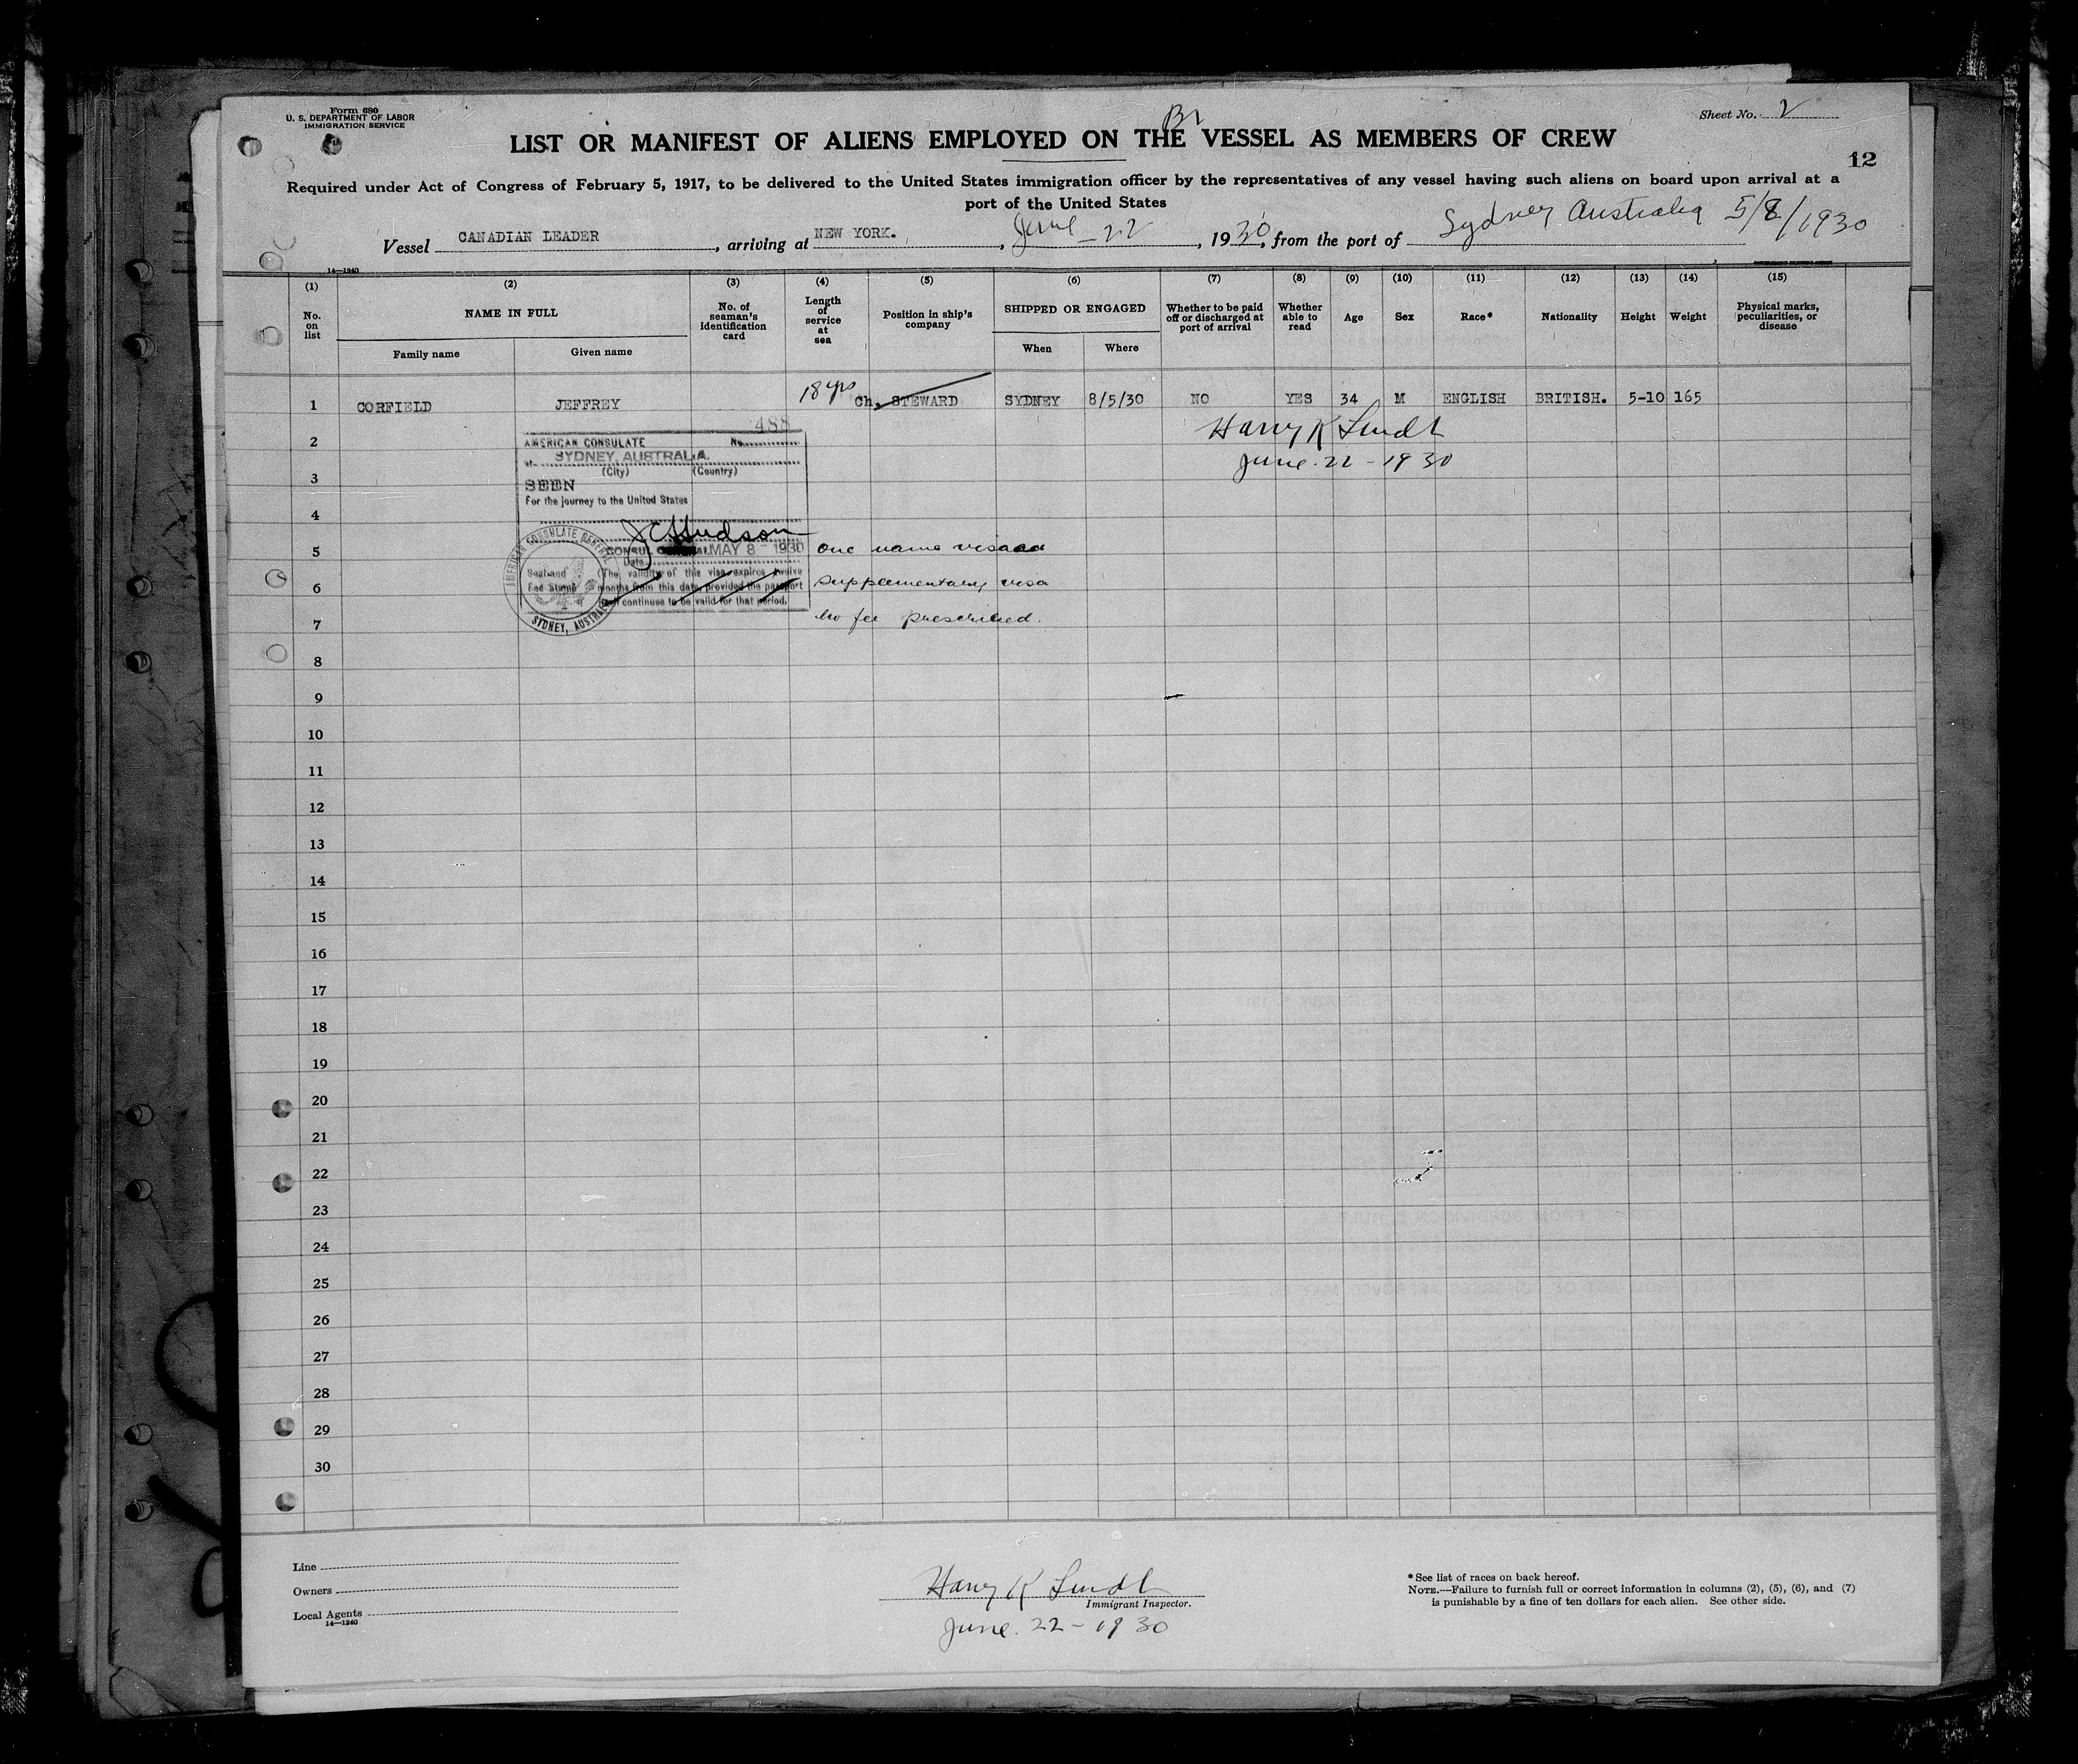 Form 680
U. S. DEPARTMENT OF LABOR
IMMIGRATION SERVICE
Br
Sheet No. 2
LIST OR MANIFEST OF ALIENS EMPLOYED ON THE VESSEL AS MEMBERS OF CREW
12
Required under Act of Congress of February 5, 1917, to be delivered to the United States immigration officer by the representatives of any vessel having such aliens on board upon arrival at a
port of the United States
Vessel CANADIAN LEADER, arriving at NEW YORK., June - 22, 1930, from the port of Sydney Australia 5/8/1930
14—1240
(1) (2) (3) (4) (5) (6) (7) (8) (9) (10) (11) (12) (13) (14) (15)
No. on list
NAME IN FULL
Family name
Given name
No. of seaman's identification card
Length of service at sea
Position in ship's company
SHIPPED OR ENGAGED
When
Where
Whether to be paid off or discharged at port of arrival
Whether able to read
Age
Sex
Race*
Nationality
Height
Weight
Physical marks, peculiarities, or disease
1 CORFIELD JEFFREY 18 yrs Ch. STEWARD SYDNEY 8/5/30 NO YES 34 M ENGLISH BRITISH. 5-10 165
488
Harry K Lindt
June. 22 - 1930
AMERICAN CONSULATE No.
at SYDNEY, AUSTRALIA.
(City) (Country)
SEEN
For the journey to the United States
J C Hudson
CONSUL MAY 8 - 1930
Date
Seal and Fee Stamp
(The validity of this visa expires twelve
months from this date, provided the passport
continues to be valid for that period.
AMERICAN CONSULATE GENERAL
SYDNEY, AUSTRALIA
one name visaed
supplementary visa
No fee prescribed.
2
3
4
5
6
7
8
9
10
11
12
13
14
15
16
17
18
19
20
21
22
23
24
25
26
27
28
29
30
Line
Owners
Local Agents
14—1240
Harry K Lindt
Immigrant Inspector.
June. 22 - 1930
* See list of races on back hereof.
NOTE.—Failure to furnish full or correct information in columns (2), (5), (6), and (7)
is punishable by a fine of ten dollars for each alien. See other side.